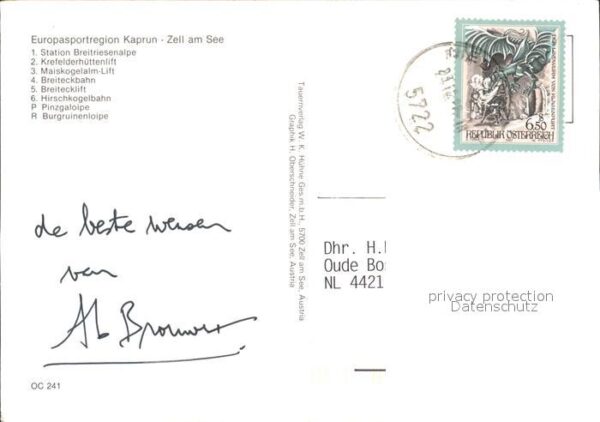 Europasportregion Kaprun · Zell am See
1. Station Breitriesenalpe
2. Krefelderhüttenlift
3. Maiskogelalm-Lift
4. Breiteckbahn
5. Breitecklift
6. Hirschkogelbahn
P Pinzgaloipe
R Burgruinenloipe
Tauernverlag W. K. Hühne Ges.m.b.H., 5700 Zell am See, Austria
Graphik H. Oberschneider, Zell am See, Austria
5722
6.50
REPUBLIK ÖSTERREICH
de beste wensen
van
Ab Brouwer
Dhr. H.
Oude Bo
NL 4421
privacy protection
Datenschutz
OC 241